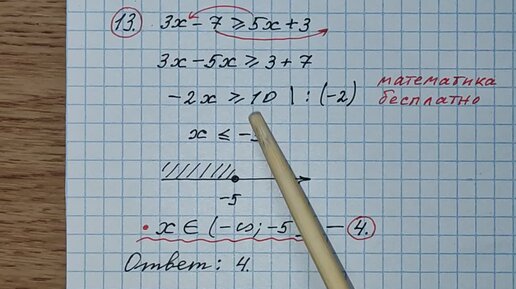 13. 3x - 7 ≥ 5x + 3
3x - 5x ≥ 3 + 7
-2x ≥ 10 | : (-2)
математика
бесплатно
x ≤ -5
-5
• x ∈ (-∞; -5 — 4.
Ответ: 4.